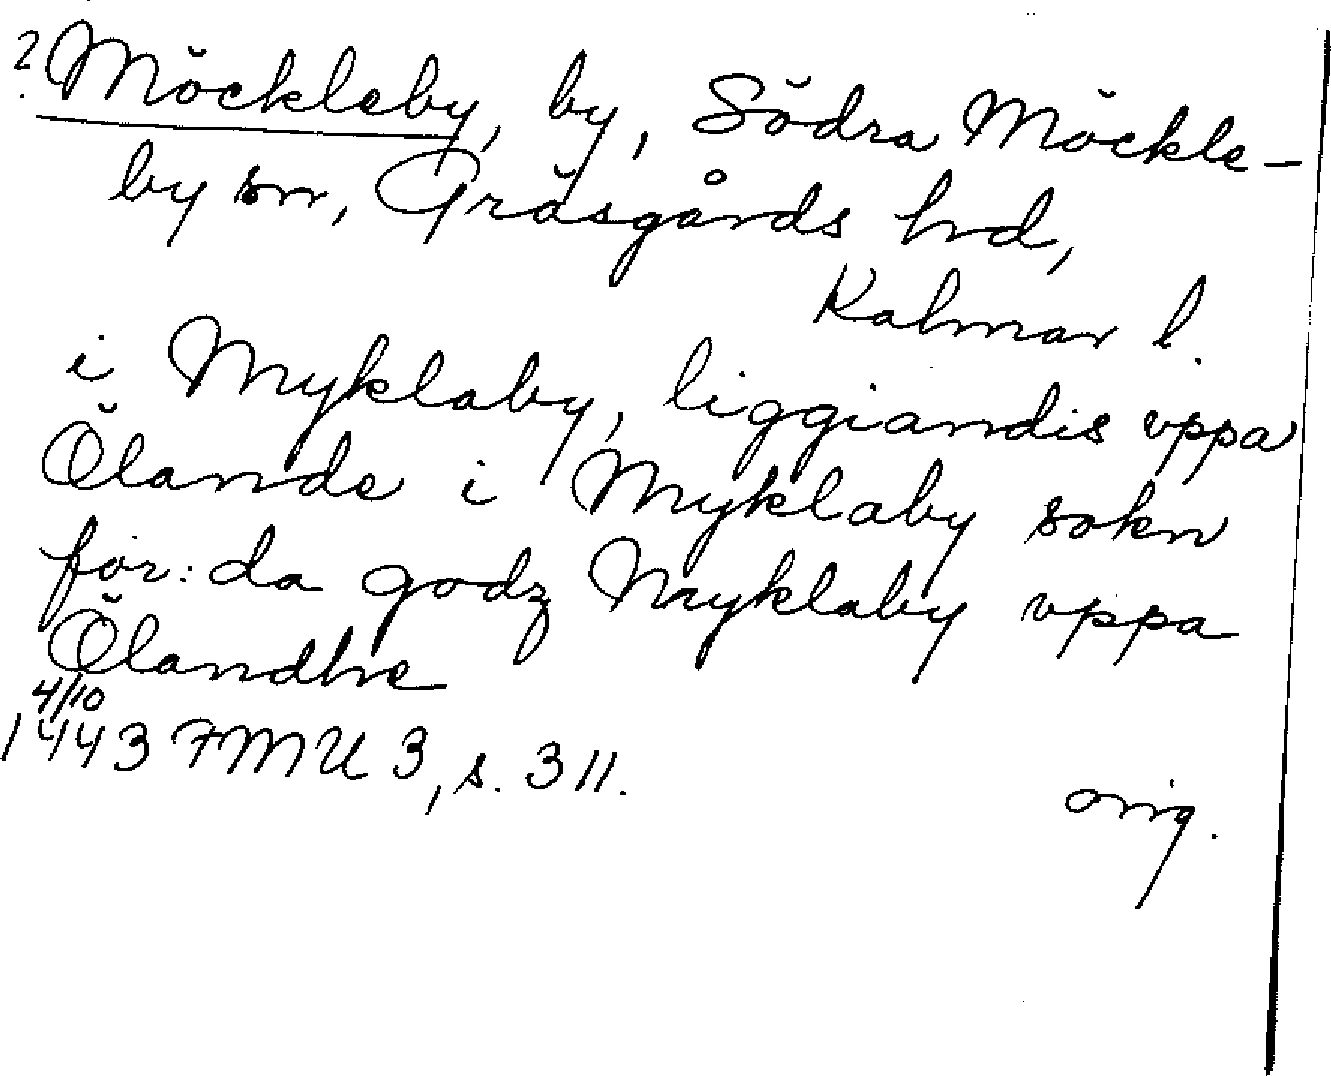 ? Möckleby, by, Södra Möckle-
by sn, Gräsgårds hd,
Kalmar l.
i Myklaby, liggiandis vppa
Ölande i Myklaby sokn
för: da godz Myklaby vppa
Ölandhe
4/10
1443 FMU 3, s. 311.
orig.